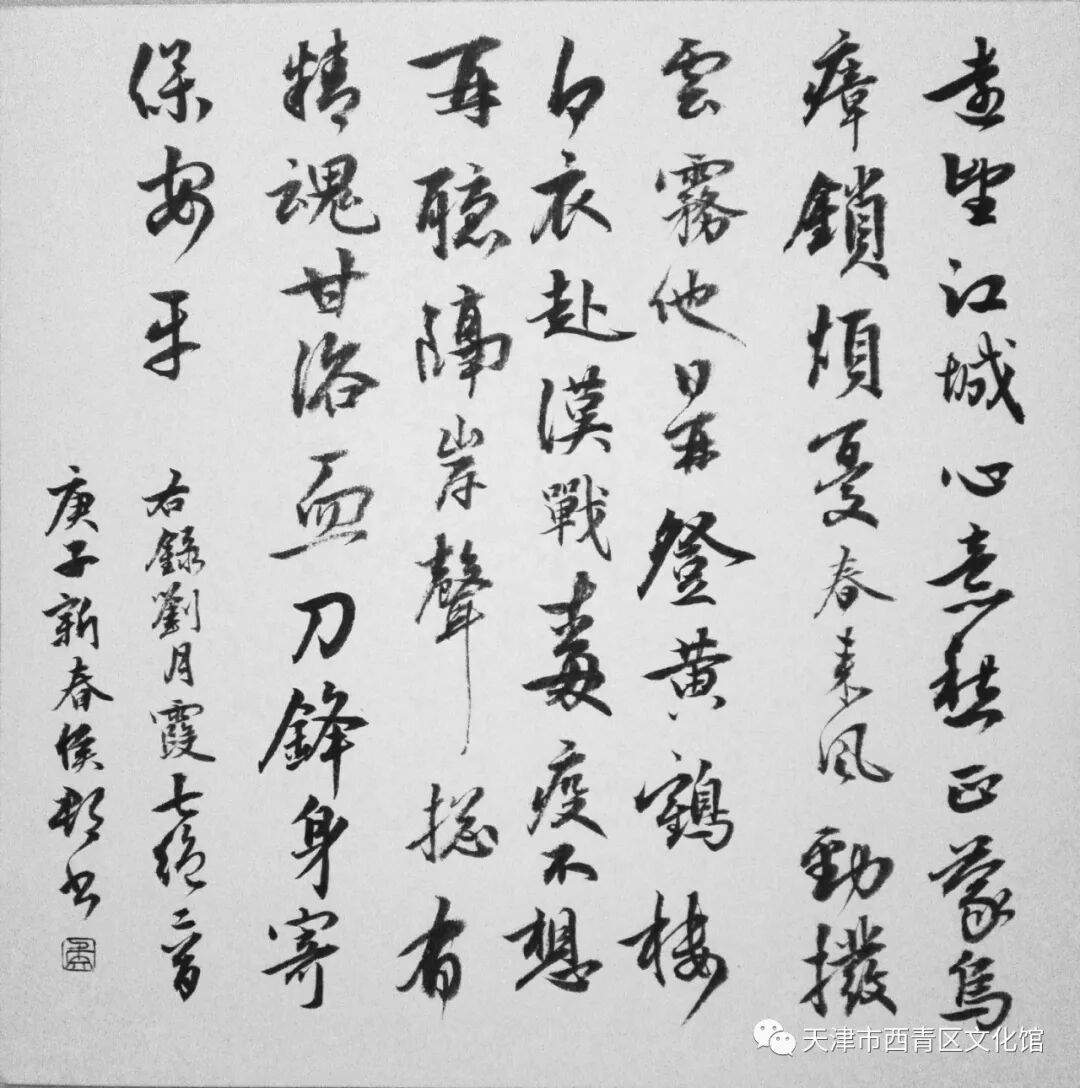 遥望江城心意愁正蒙烏
瘴鎖煩憂春来風動撥
雲霧他日再登黄鶴樓
白衣赴漢戰毒疫不想
再聽隔岸聲揔有
精魂甘浴血刀鋒身寄
保安平
右錄劉月霞七絕二首
庚子新春侯书
天津市西青区文化馆